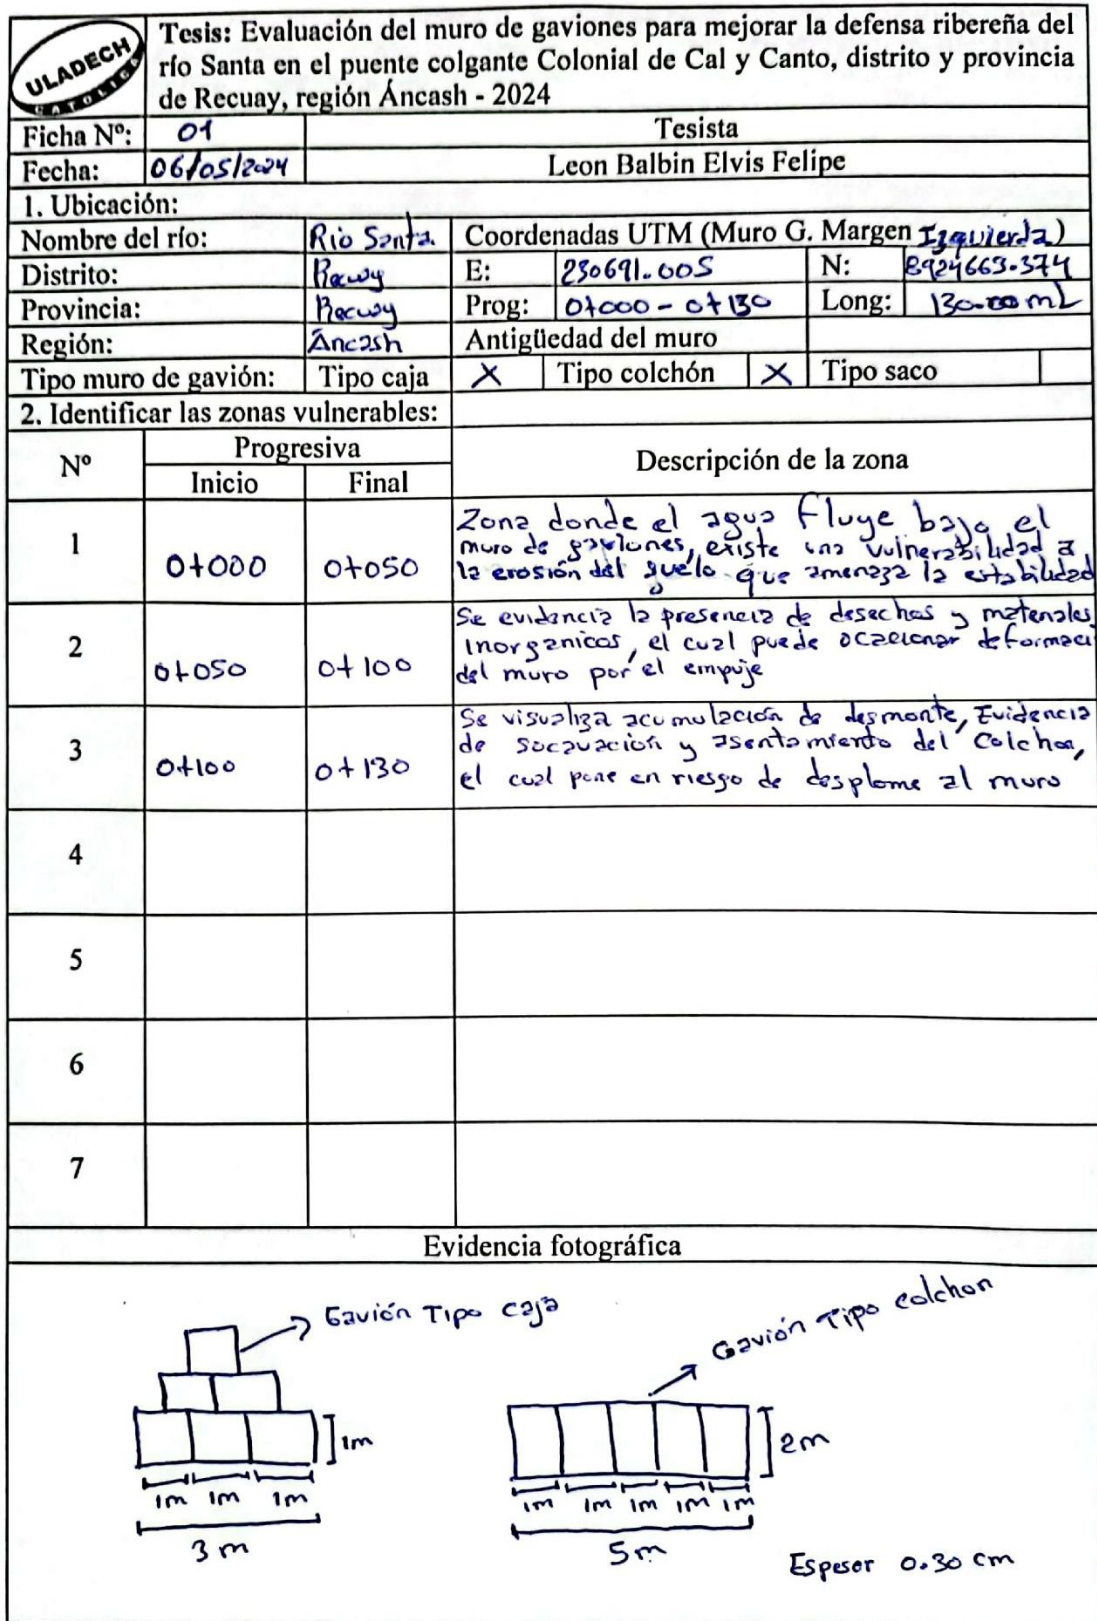 ULADECH
CATOLICA
Tesis: Evaluación del muro de gaviones para mejorar la defensa ribereña del
río Santa en el puente colgante Colonial de Cal y Canto, distrito y provincia
de Recuay, región Áncash - 2024
Ficha Nº: 01 Tesista
Fecha: 06/05/2024 Leon Balbin Elvis Felipe
1. Ubicación:
Nombre del río: Rio Santa. Coordenadas UTM (Muro G. Margen Izquierda)
Distrito: Recuay E: 230691.005 N: 8924663.374
Provincia: Recuay Prog: 0+000 - 0+130 Long: 130.00 mL
Región: Áncash Antigüedad del muro
Tipo muro de gavión: Tipo caja X Tipo colchón X Tipo saco
2. Identificar las zonas vulnerables:
Nº Progresiva Descripción de la zona
Inicio Final
1 0+000 0+050 Zona donde el agua fluye bajo el
muro de gaviones, existe una vulnerabilidad a
la erosión del suelo que amenaza la estabilidad
2 0+050 0+100 Se evidencia la presencia de desechos y materiales
inorganicos, el cual puede ocacionar deformaci
del muro por el empuje
3 0+100 0+130 Se visualiza acumulación de desmonte, Evidencia
de socavación y asentamiento del Colchon,
el cual pone en riesgo de desplome al muro
4
5
6
7
Evidencia fotográfica
Gavión Tipo caja
1m
1m 1m 1m
3 m
Gavión Tipo colchon
2m
1m 1m 1m 1m 1m
5m
Espesor 0.30 cm